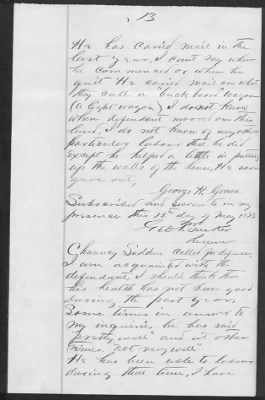 13
He has carried mail in the
last year, I cant say when
he commenced or when he
quit He carried mail on what
they call a "buck board" wagon
(a light wagon) I do not know
when defendant moved on this
land, I do not know of any other
particular labors that he did
except he helped a little in putting
up the walls of the house, He soon
gave out,
George H.
Subscribed and sworn to in my
presence this 12th day of May 1873
Receiver
Chauncy called for defense
I am acquainted with the
defendant, I should think then
his health has not been good
during the past year,
Some times in answer to
my inquiries he has said
"pretty well" and at other
times, "not very well"
He has been able to labor
during that time, I have